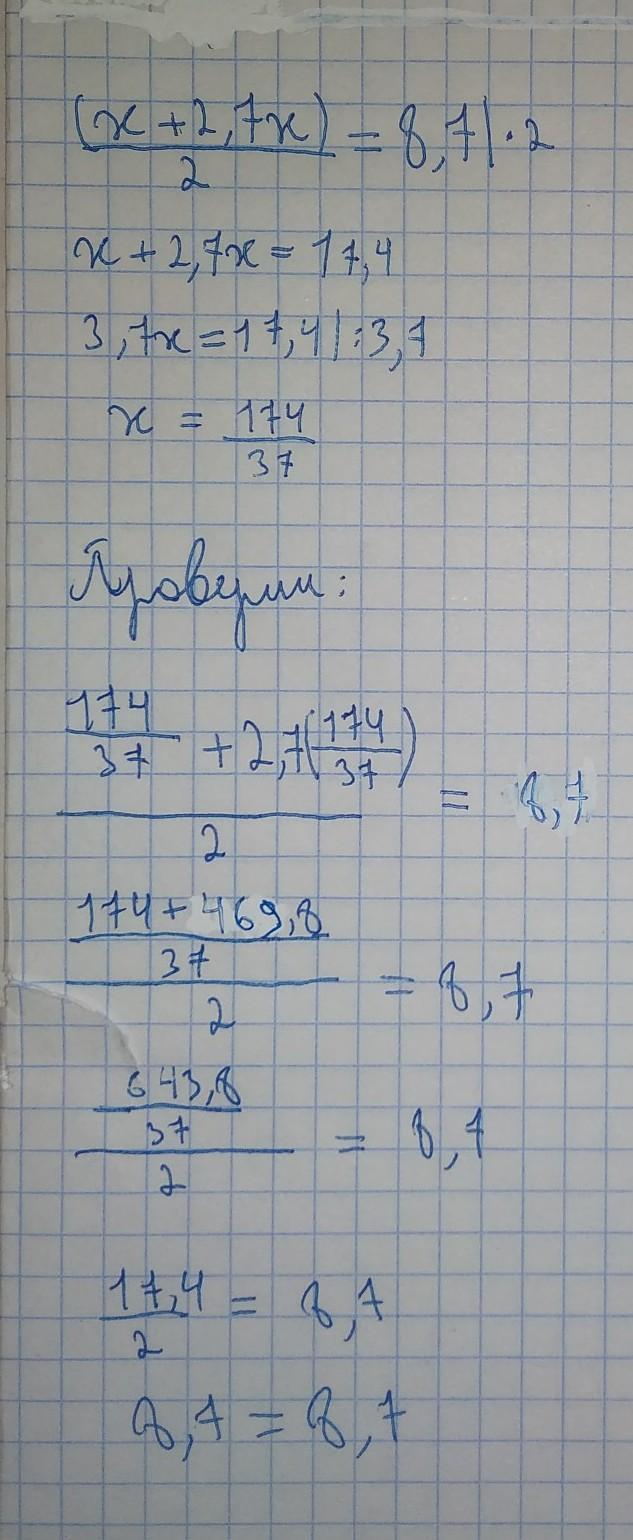 (x+2,7x)/2 = 8,7 | · 2
x + 2,7x = 17,4
3,7x = 17,4 | : 3,7
x = 174/37
Проверим:
(174/37 + 2,7(174/37))/2 = 8,7
((174 + 469,8)/37)/2 = 8,7
(643,8/37)/2 = 8,7
17,4/2 = 8,7
8,7 = 8,7